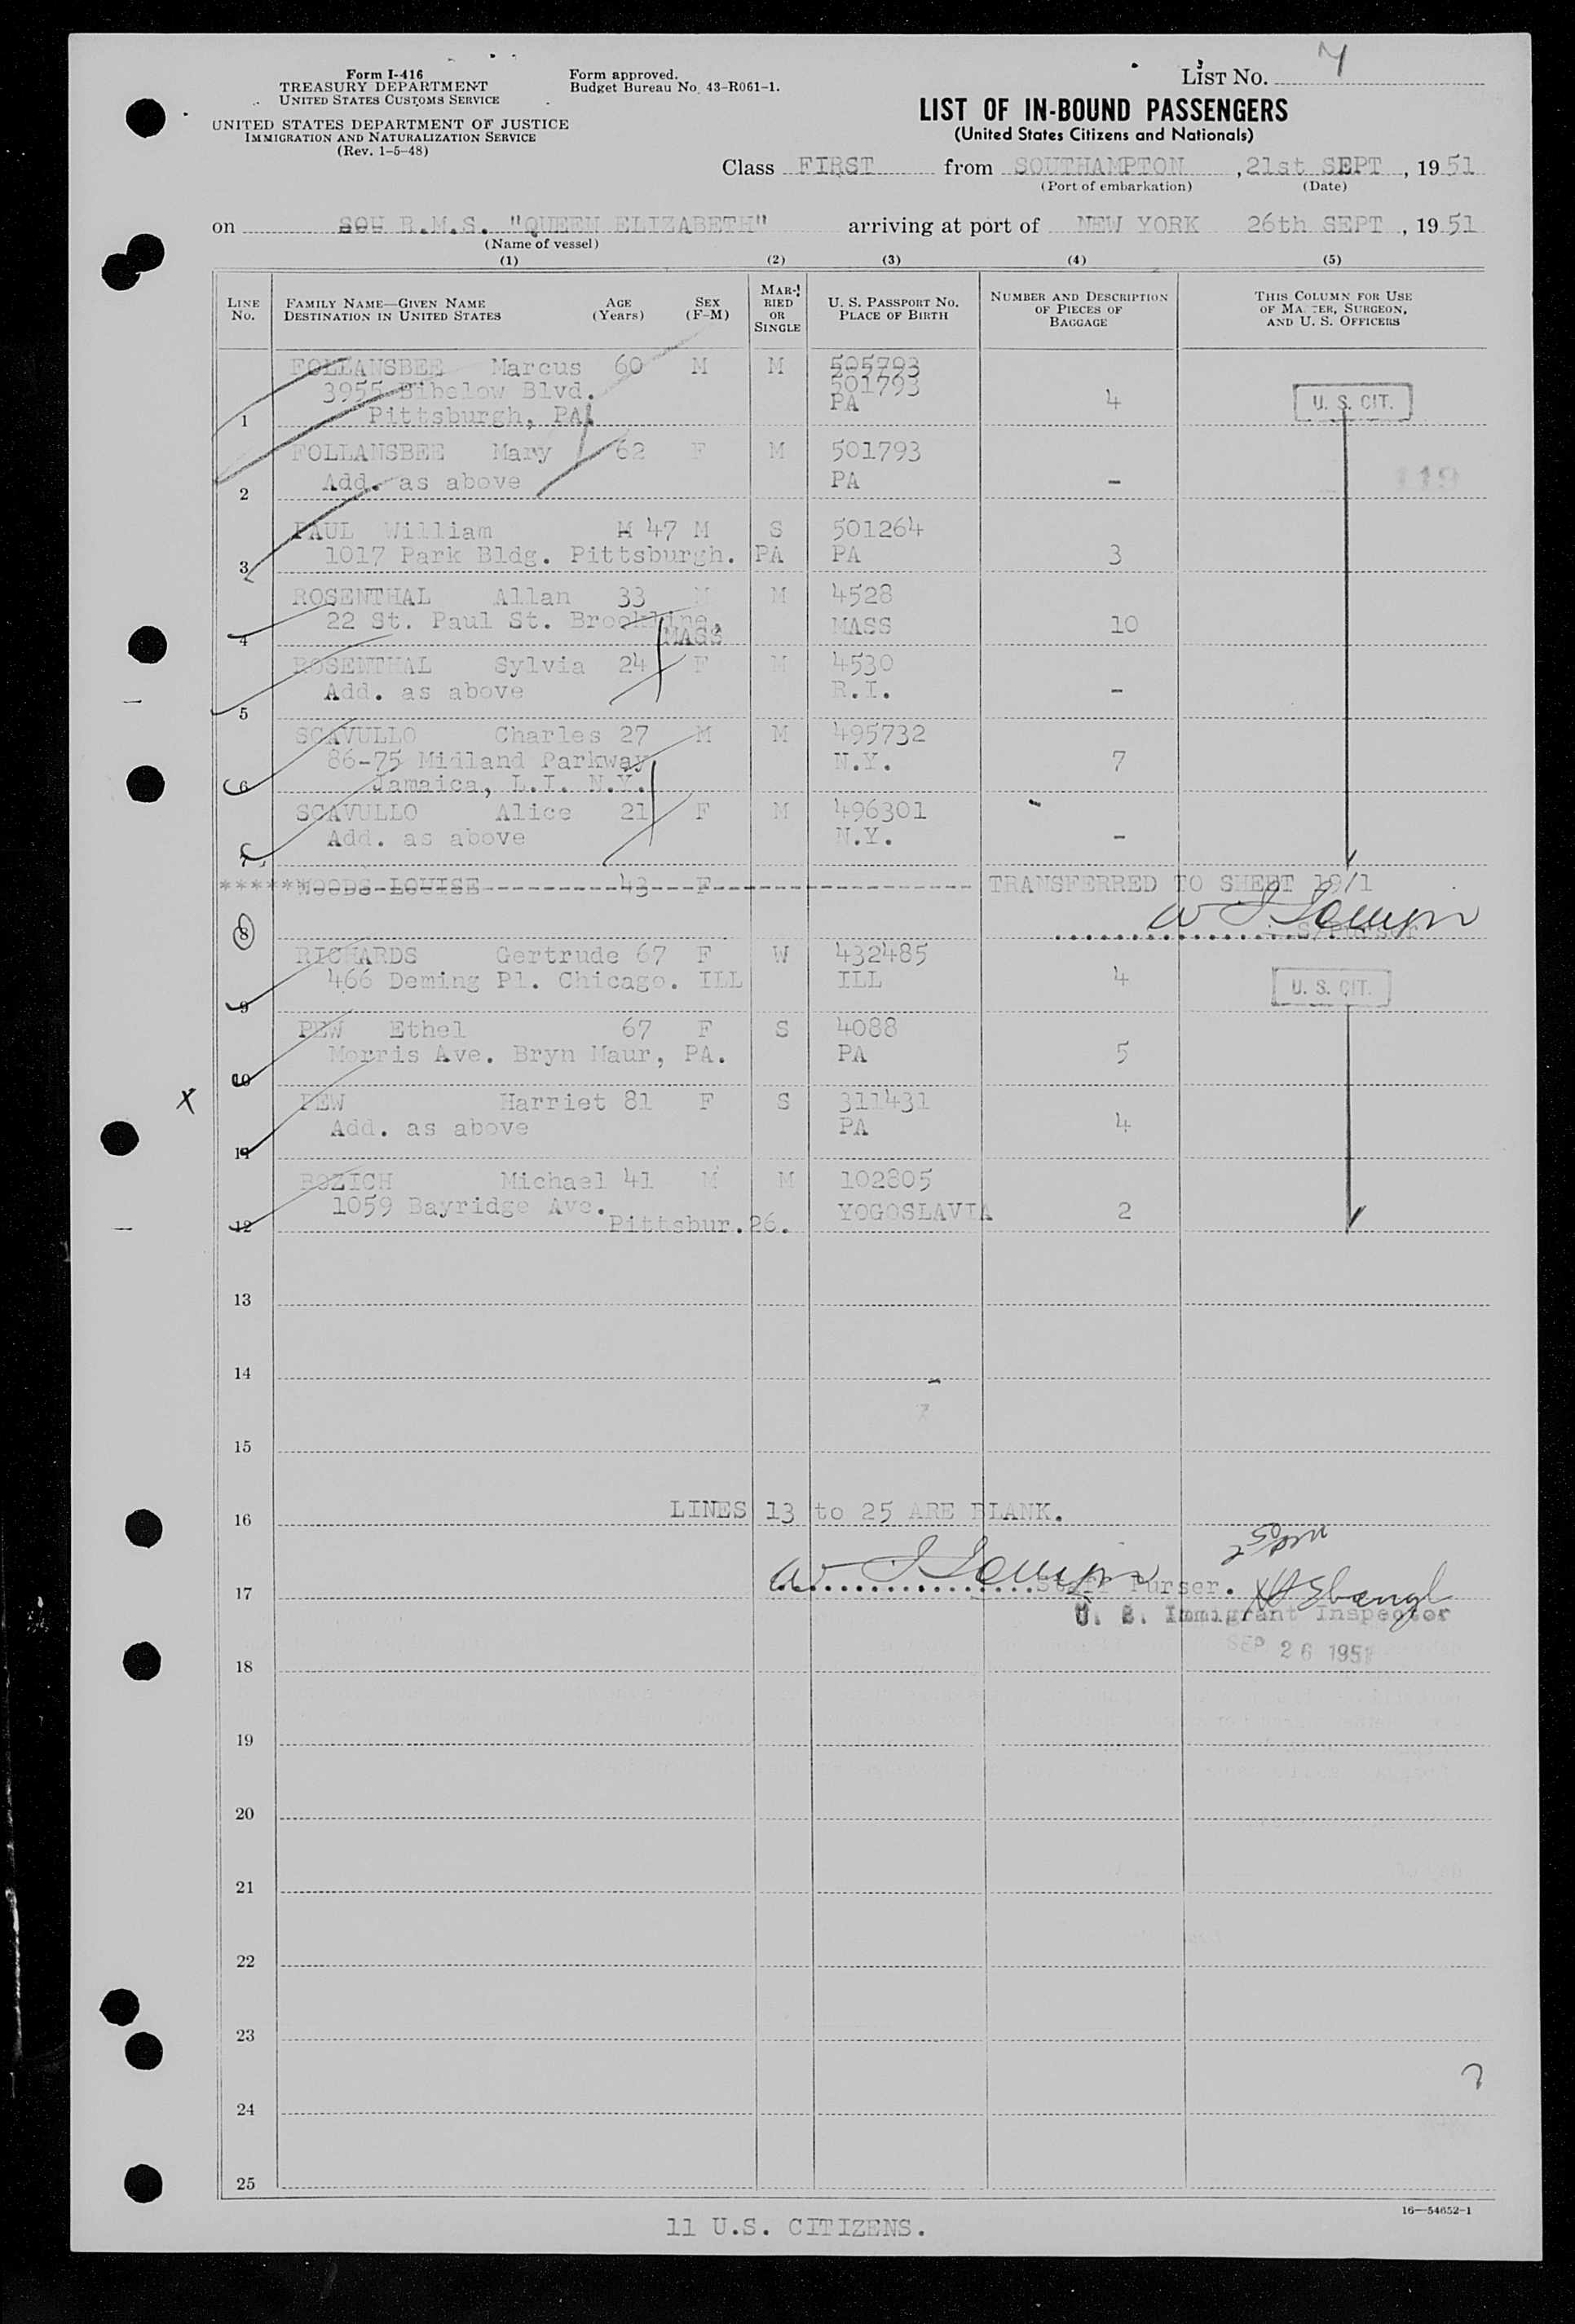 Form I-416
TREASURY DEPARTMENT
UNITED STATES CUSTOMS SERVICE
UNITED STATES DEPARTMENT OF JUSTICE
IMMIGRATION AND NATURALIZATION SERVICE
(Rev. 1-5-48)
Form approved.
Budget Bureau No. 43-R061-1.
LIST No. 7
LIST OF IN-BOUND PASSENGERS
(United States Citizens and Nationals)
Class FIRST from SOUTHAMPTON, 21st SEPT, 1951
(Port of embarkation) (Date)
on R.M.S. "QUEEN ELIZABETH" arriving at port of NEW YORK 26th SEPT, 1951
(Name of vessel)
(1) (2) (3) (4) (5)
LINE No. FAMILY NAME—GIVEN NAME DESTINATION IN UNITED STATES AGE (Years) SEX (F-M) MARRIED OR SINGLE U. S. PASSPORT No. PLACE OF BIRTH NUMBER AND DESCRIPTION OF PIECES OF BAGGAGE THIS COLUMN FOR USE OF MA TER, SURGEON, AND U. S. OFFICERS
FOLLANSBEE Marcus 60 M M 505793
3955 Bibelow Blvd. 501793
1 Pittsburgh, PA. PA 4 U. S. CIT.
FOLLANSBEE Mary 62 F M 501793
2 Add. as above PA - 119
PAUL William M 47 M S 501264
3 1017 Park Bldg. Pittsburgh. PA PA 3
ROSENTHAL Allan 33 M M 4528
4 22 St. Paul St. Brookline, MASS MASS 10
ROSENTHAL Sylvia 24 F M 4530
5 Add. as above R.I. -
SCAVULLO Charles 27 M M 495732
86-75 Midland Parkway N.Y. 7
6 Jamaica, L.I. N.Y.
SCAVULLO Alice 21 F M 496301
7 Add. as above N.Y. -
******WOODS LOUISE 43 F TRANSFERRED TO SHEET 19/1
8
RICHARDS Gertrude 67 F W 432485
9 466 Deming Pl. Chicago. ILL ILL 4 U. S. CIT.
PEW Ethel 67 F S 4088
10 Morris Ave. Bryn Maur, PA. PA 5
X PEW Harriet 81 F S 311431
11 Add. as above PA 4
BOZICH Michael 41 M M 102805
12 1059 Bayridge Ave. Pittsbur. 26. YOGOSLAVIA 2
13
14
15
16 LINES 13 to 25 ARE BLANK.
250 pm
17 Staff Purser.
U. S. Immigrant Inspector
SEP 26 1951
18
19
20
21
22
23
24
25
16—54652-1
11 U.S. CITIZENS.